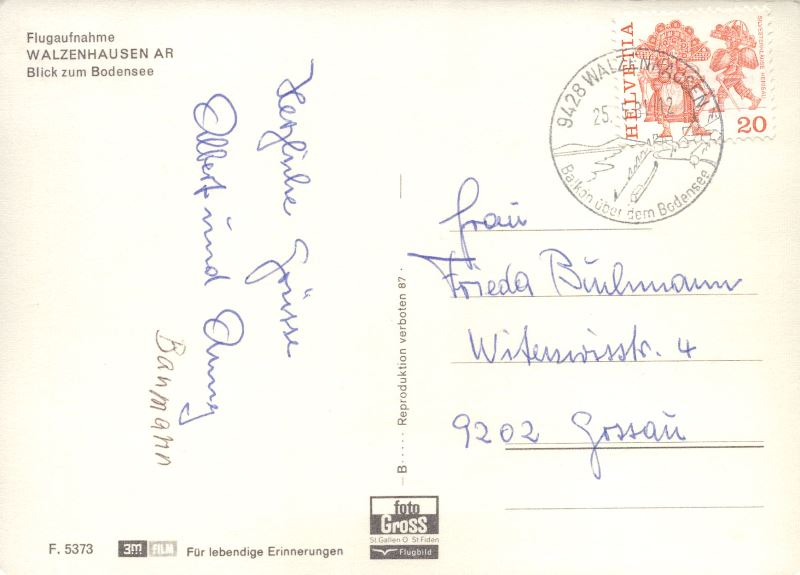 Flugaufnahme
WALZENHAUSEN AR
Blick zum Bodensee
Herzliche Grüsse
Albert und Anny
Baumann
HELVETIA
20
9428 WALZENHAUSEN
25.
Balkon über dem Bodensee
Frau
Frieda Buhlmann
Witenwisstr. 4
9202 Gossau
— B······ Reproduktion verboten 87 ·
foto
Gross
St.Gallen O St.Fiden
Flugbild
F. 5373
3m FILM
Für lebendige Erinnerungen